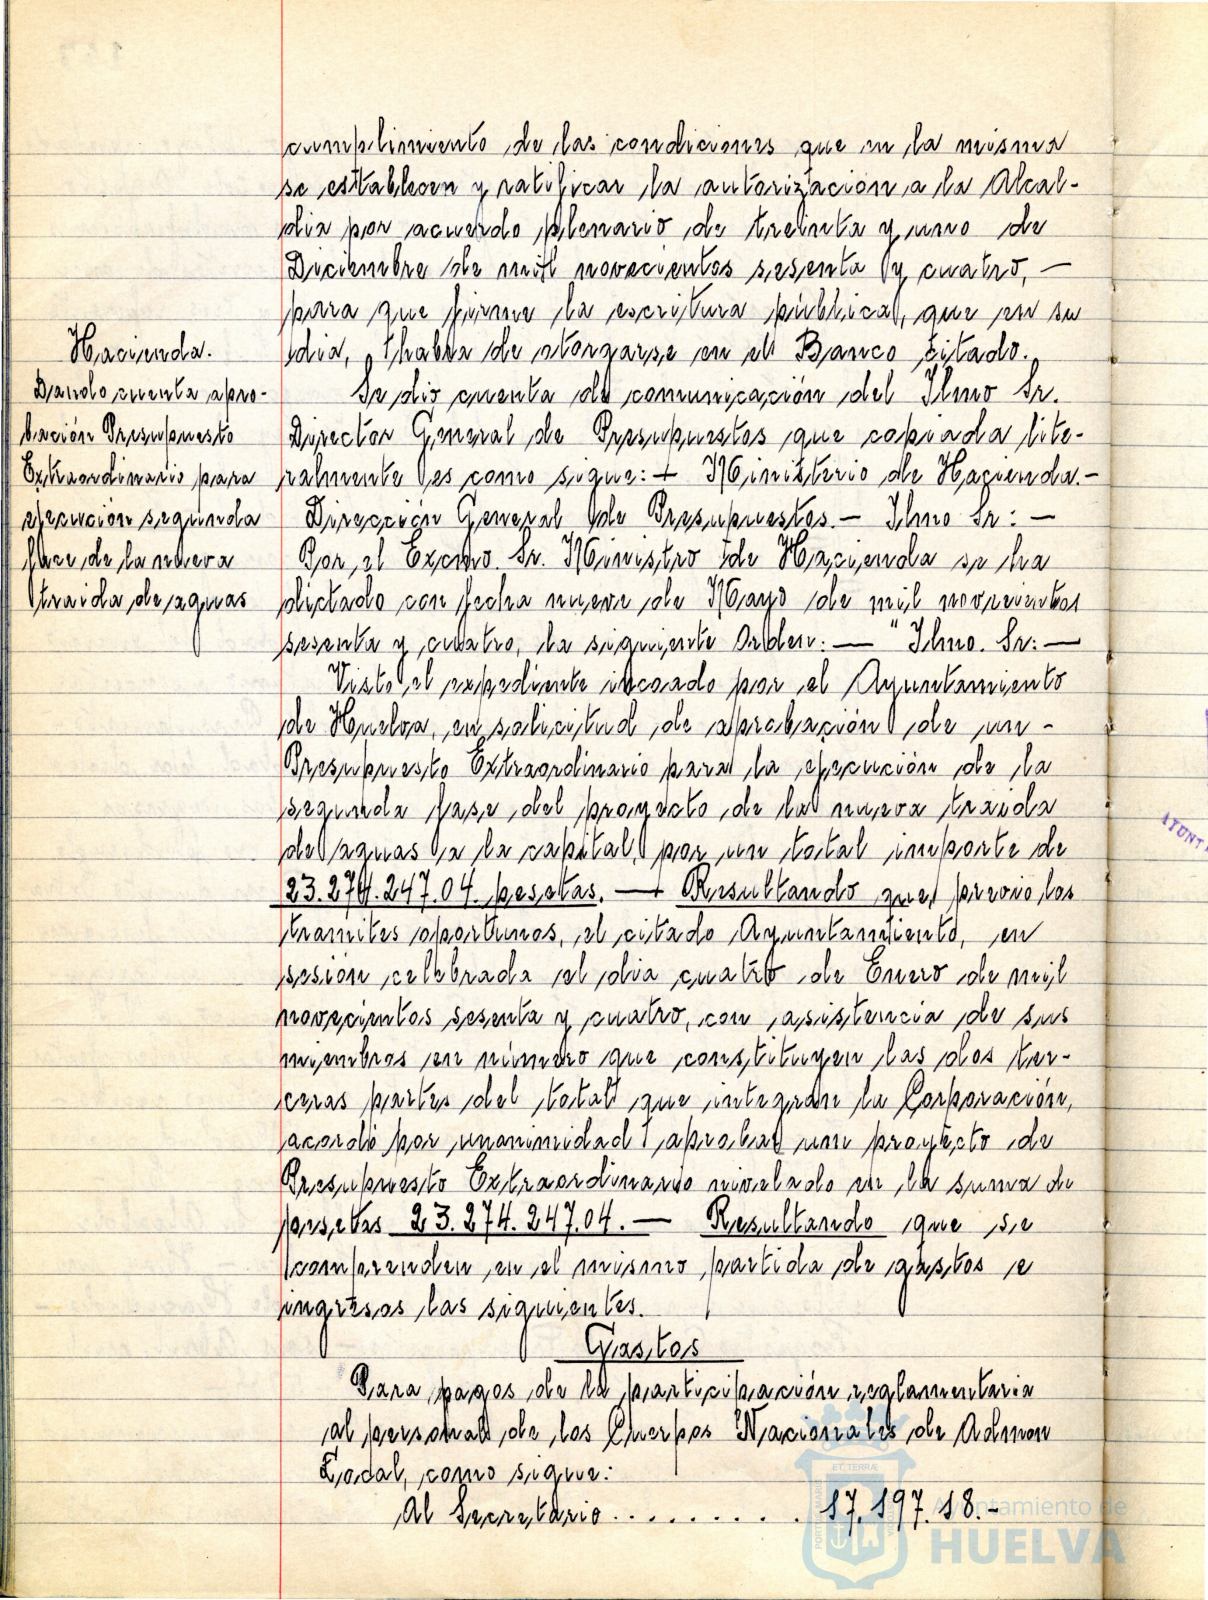 cumplimiento de las condiciones que en la misma
se establecen y ratificar la autorización a la Alcal-
día por acuerdo plenario de treinta y uno de
Diciembre de mil novecientos sesenta y cuatro, —
para que firme la escritura pública, que en su
día, habra de otorgarse en el Banco citado.
Hacienda.
Dando cuenta apro-
bación Presupuesto
Extraordinario para
ejecución segunda
fase de la nueva
traida de aguas
Se dio cuenta de comunicación del Ilmo Sr.
Director General de Presupuestos que copiada lite-
ralmente es como sigue: — Ministerio de Hacienda. —
Dirección General de Presupuestos. — Ilmo Sr: —
Por el Excmo. Sr. Ministro de Hacienda se ha
dictado con fecha nueve de Mayo de mil novecientos
sesenta y cuatro, la siguiente Orden: — "Ilmo. Sr: —
Visto el expediente incoado por el Ayuntamiento
de Huelva, en solicitud de aprobación de un -
Presupuesto Extraordinario para la ejecución de la
segunda fase del proyecto de la nueva traida
de aguas a la capital, por un total importe de
23.274.247.04. pesetas. — Resultando que, previo los
tramites oportunos, el citado Ayuntamiento, en
sesión celebrada el día cuatro de Enero de mil
novecientos sesenta y cuatro, con asistencia de sus
miembros en número que constituyen las dos ter-
ceras partes del total que integran la Corporación,
acordó por unanimidad aprobar un proyecto de
Presupuesto Extraordinario nivelado en la suma de
pesetas 23.274.247.04. — Resultando que se
comprenden en el mismo partida de gastos e
ingresos las siguientes.
Gastos
Para pagos de la participación reglamentaria
al personal de los Cuerpos Nacionales de Admon
Local, como sigue:
Al Secretario . . . . . . . . . 17.197.18.-
Ayuntamiento de
HUELVA